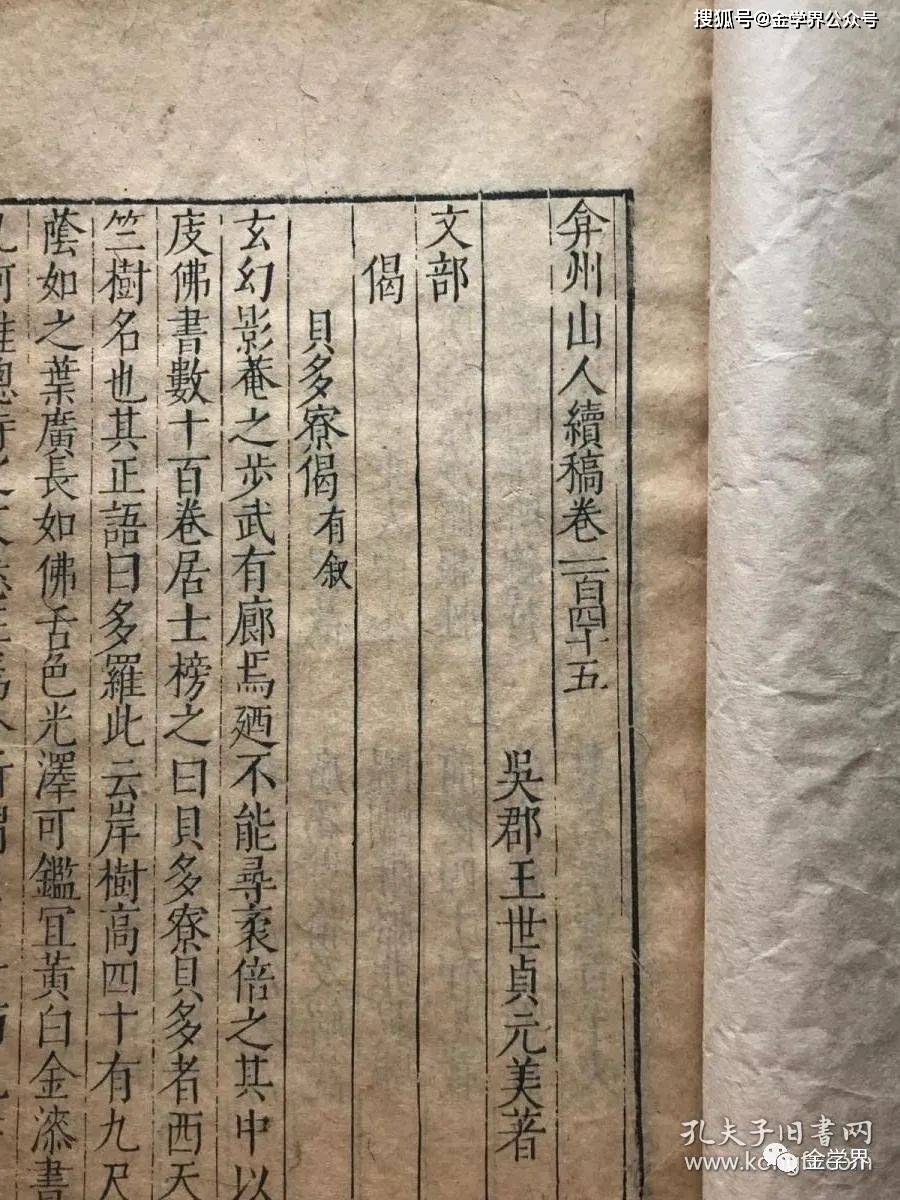 搜狐号@金学界公众号
弇州山人續稿卷一百四十五
吳郡王世貞元美著
文部
偈
貝多寮偈有叙
玄幻影菴之步武有廊焉廼不能尋袤倍之其中以
庋佛書數十百卷居士榜之曰貝多寮貝多者西天
竺樹名也其正語曰多羅此云岸樹高四十有九尺
蔭如之葉廣長如佛舌色光澤可鑑冝黃白金漆書
孔夫子旧书网
金学界